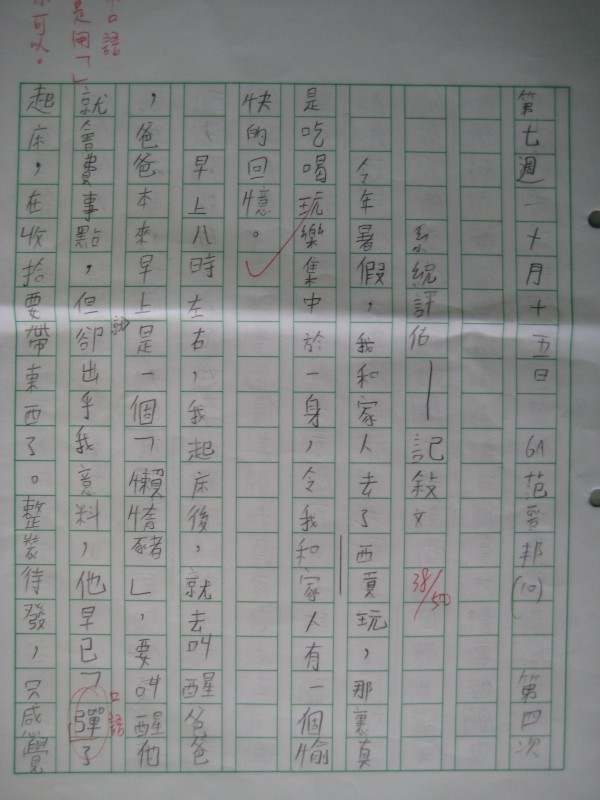 第七週一十月十五日 6A 范邦(10) 第四次
系統評估——記敍文 38/50
今年暑假，我和家人去了西貢玩，那裏真
是吃喝玩樂集中於一身，令我和家人有一個愉
快的回憶。
早上八時左右，我起床後，就去叫醒爸爸
，爸爸本來早上就是一個「懶惰豬」，要叫醒他
口語
就會費事點，但卻出乎我意料，他早已「彈了
起床，在收拾要帶東西了。整裝待發，只感覺
口語
是用「」
可以。